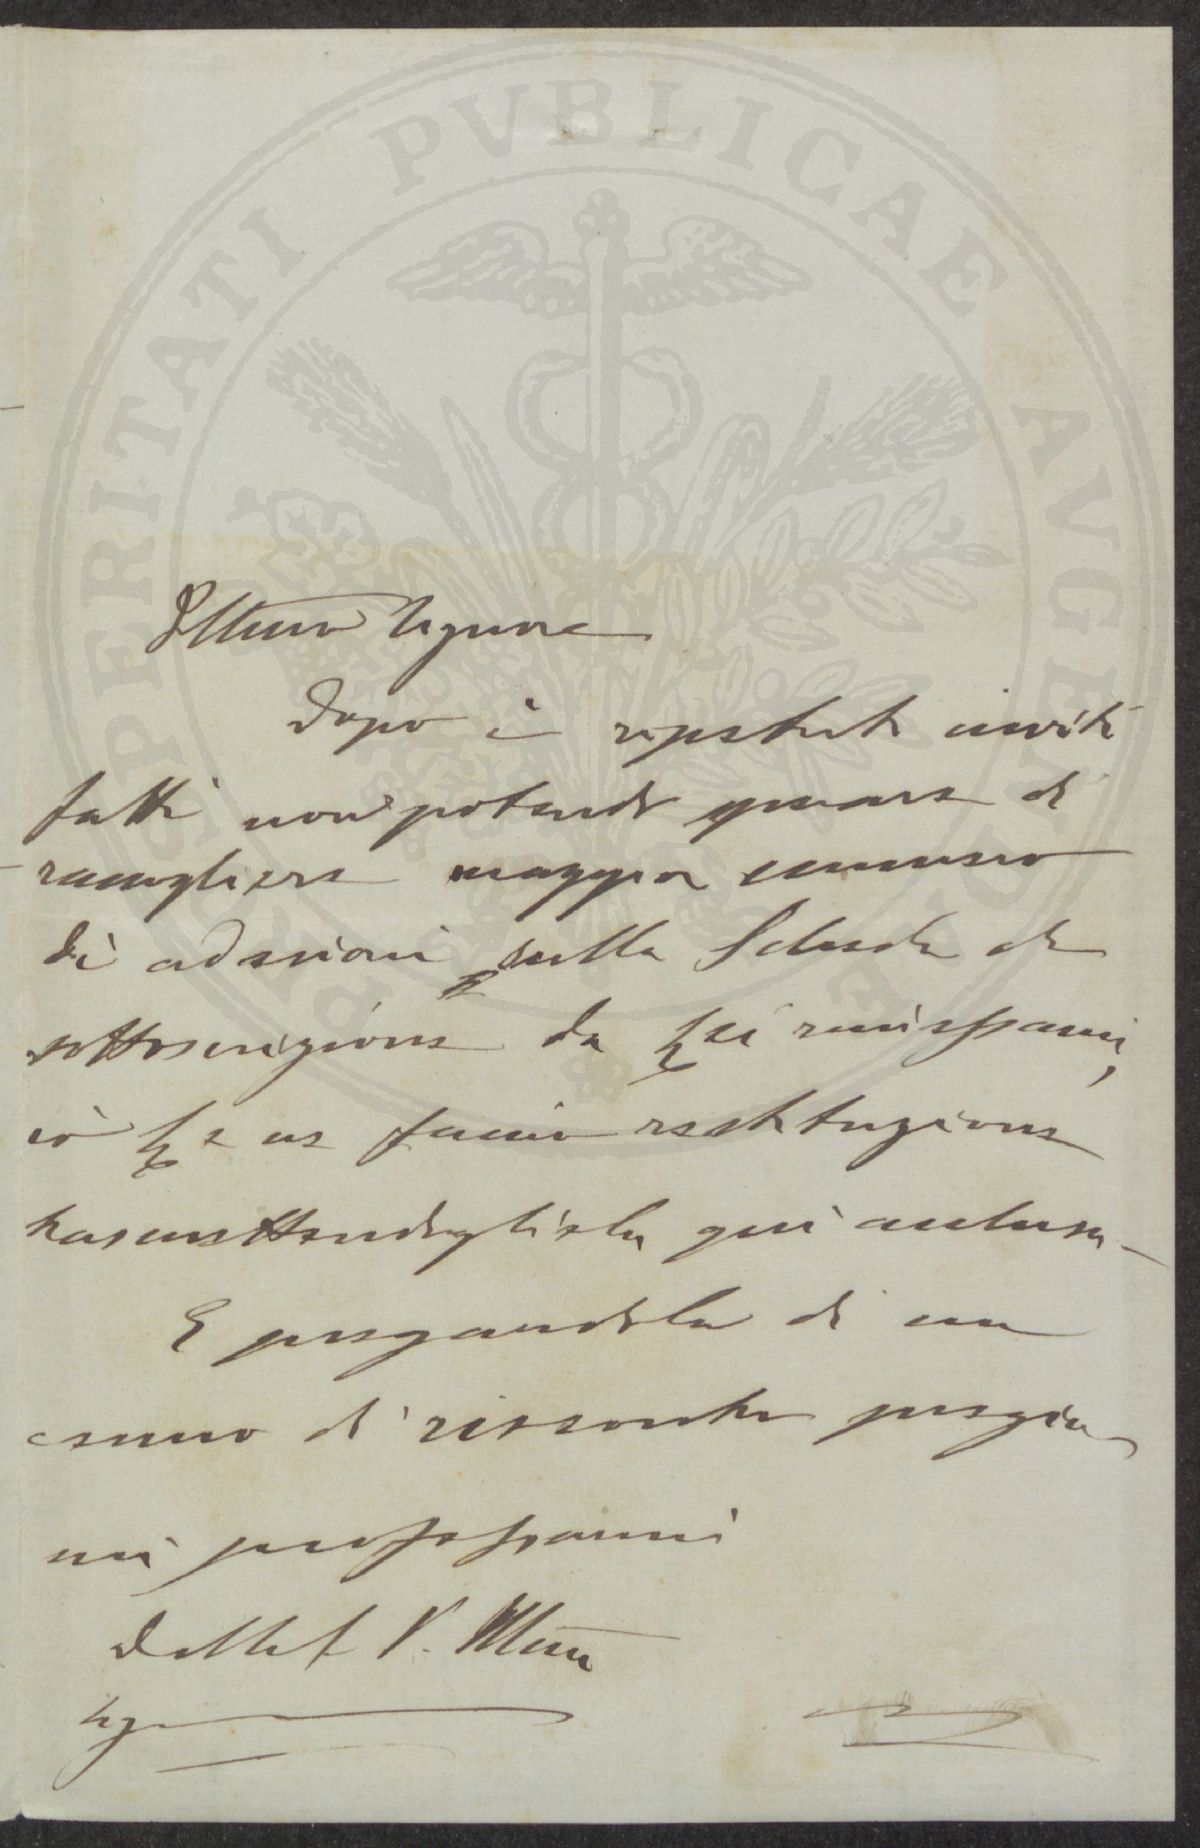 PROSPERITATI PVBLICAE AVGENDAE
Illmo Signore
Dopo i ripetuti inviti
fatti non potendo sperare di
raccogliere maggior numero
di adesioni sulla Scheda di
sottoscrizione da Lei rimessami,
io Le ne faccio restituzione
trasmettendogliela qui acclusa
E pregandola di un
cenno di riscontro pregia
mi professarmi
Della S. V. Illma